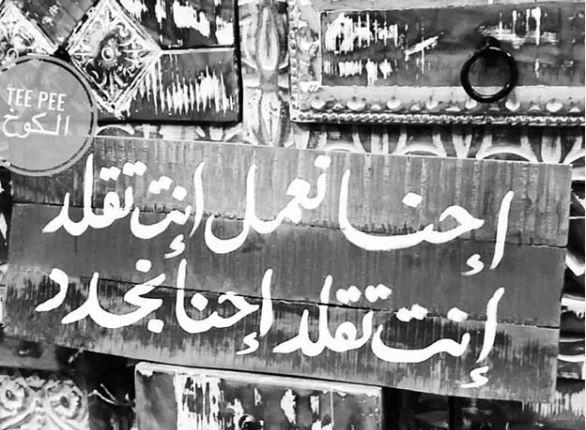 TEE PEE
الكوخ
إحنا نعمل إنت تقلد
إنت تقلد إحنا نجدد